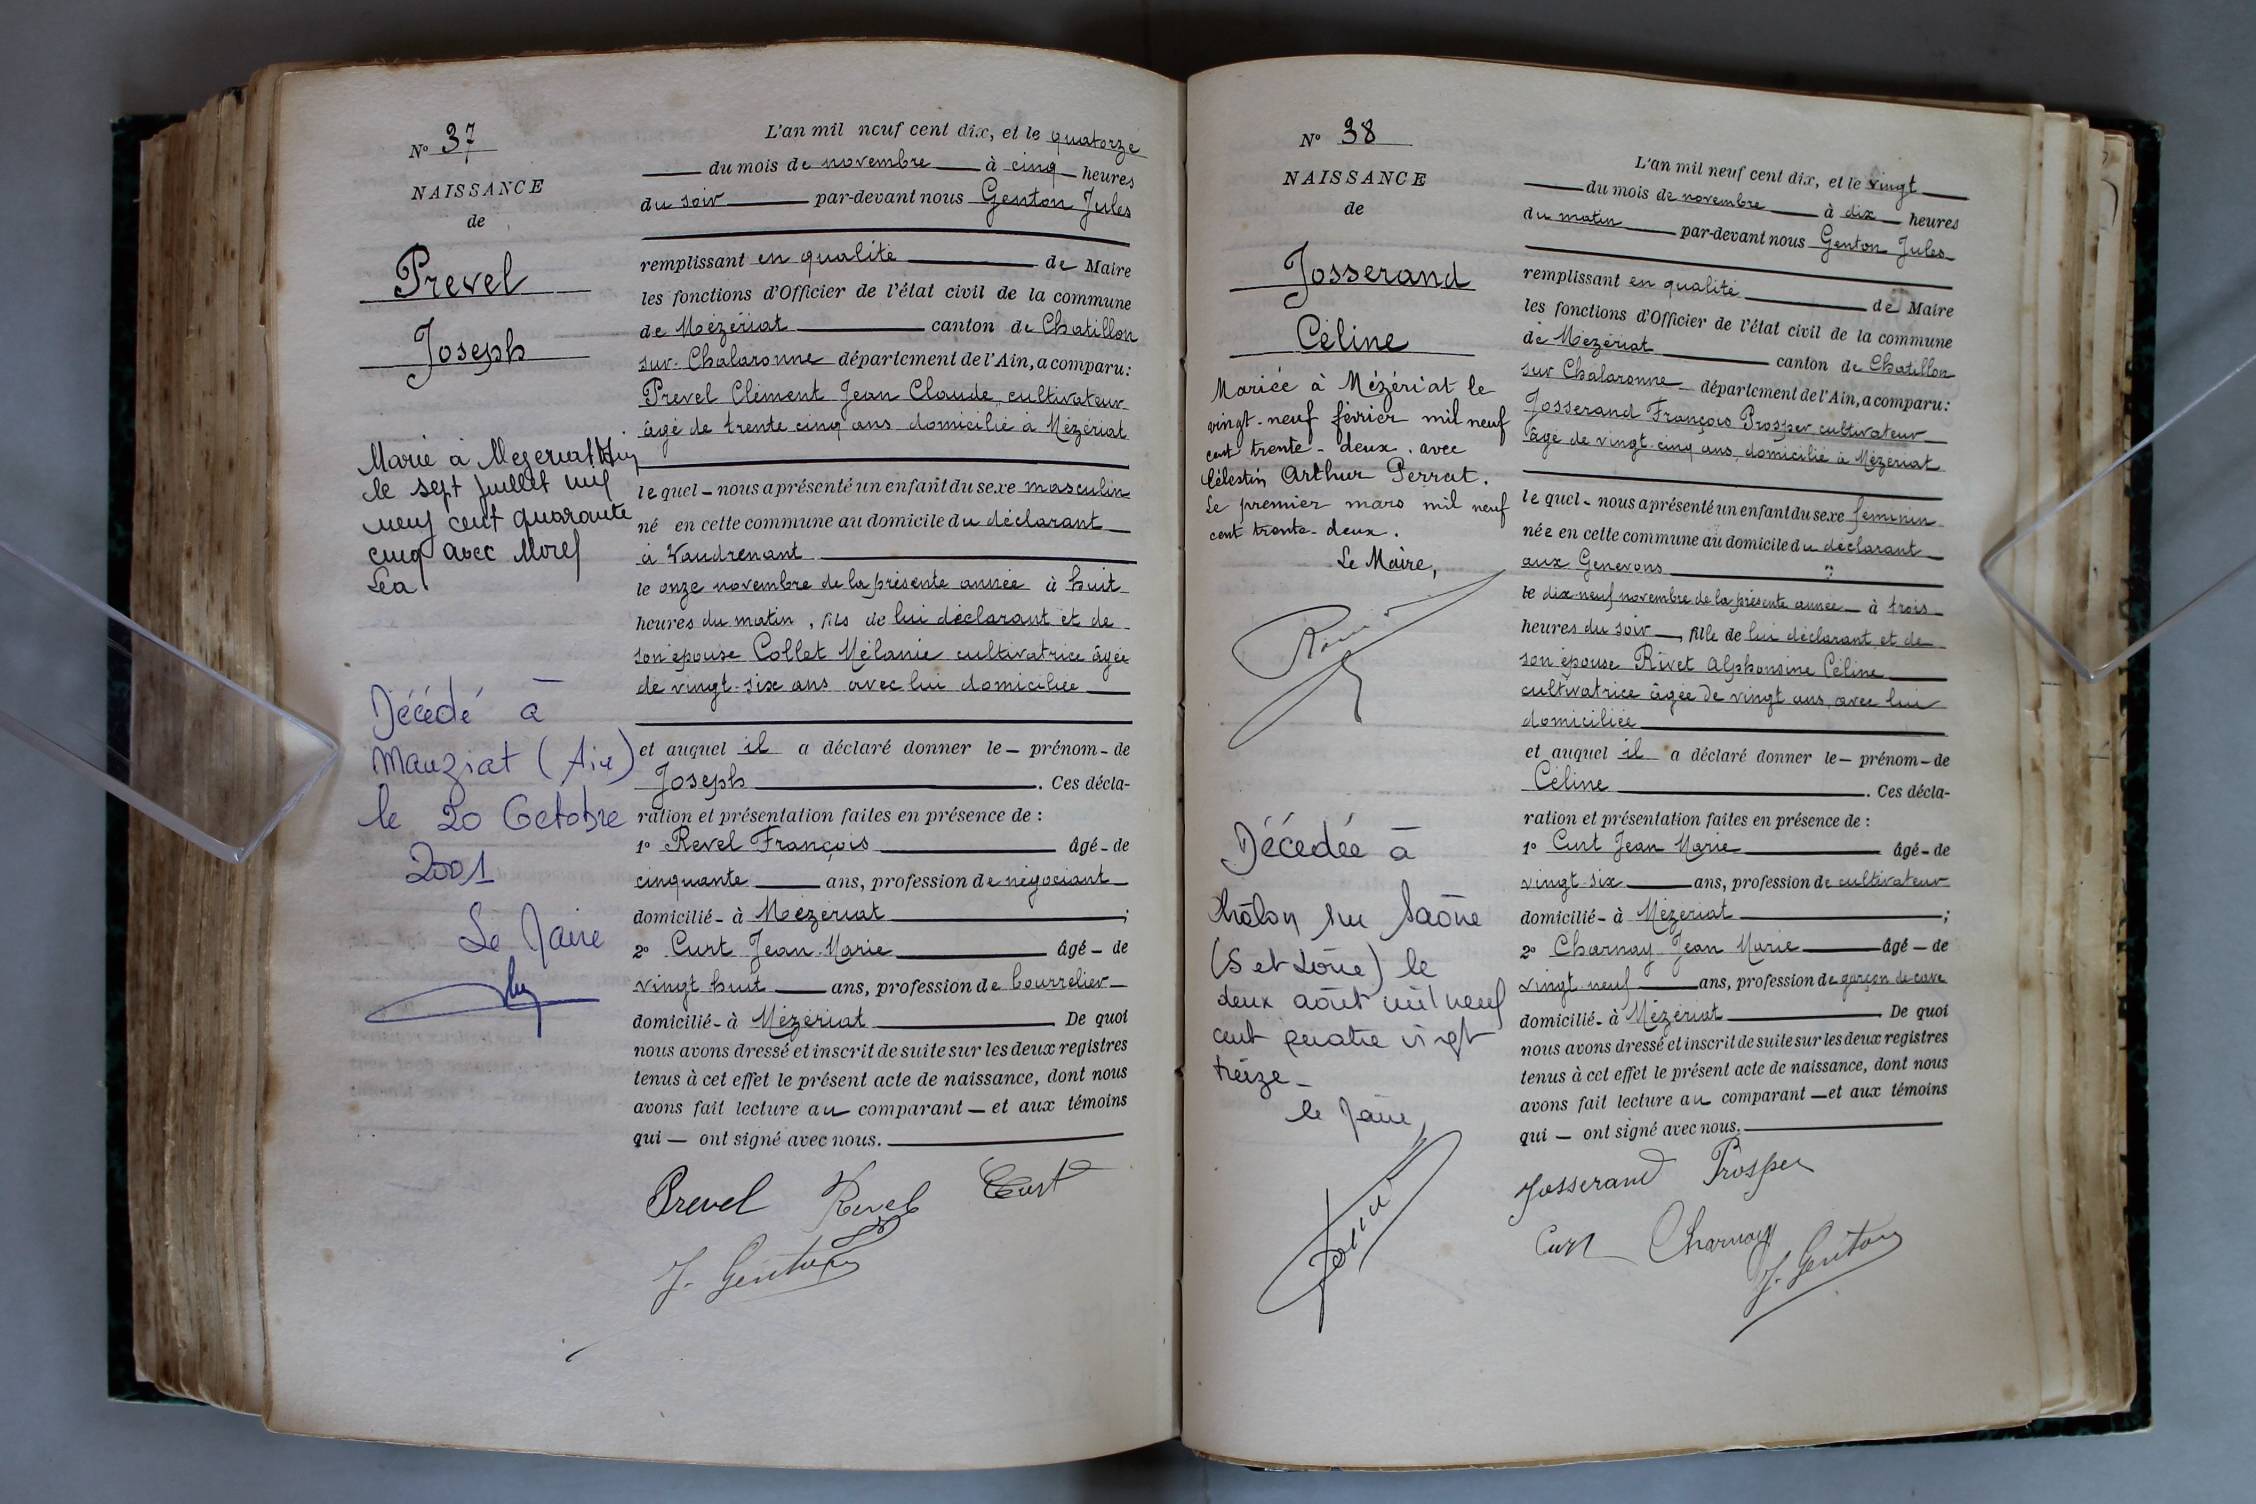 N° 37
NAISSANCE
de
Prevel
Joseph
Marié à Mezeriat
le sept juillet mil
neuf cent quarante
cinq avec Morel
Léa
Décédé à
Mauziat (Ain)
le 20 Octobre
2001
Le Maire
L'an mil neuf cent dix, et le quatorze
du mois de novembre à cinq heures
du soir par-devant nous Genton Jules
remplissant en qualité de Maire
les fonctions d'Officier de l'état civil de la commune
de Mézériat canton de Chatillon
sur-Chalaronne département de l'Ain, a comparu:
Prevel Clément Jean Claude, cultivateur
âgé de trente cinq ans domicilié à Mézériat
le quel - nous a présenté un enfant du sexe masculin
né en cette commune au domicile du déclarant
à Vaudrenant
le onze novembre de la présente année à huit
heures du matin, fils de lui déclarant et de
son épouse Collet Mélanie cultivatrice âgée
de vingt-six ans avec lui domiciliée
et auquel il a déclaré donner le - prénom - de
Joseph. Ces décla-
ration et présentation faites en présence de :
1° Revel François âgé - de
cinquante ans, profession de négociant
domicilié - à Mézériat ;
2° Curt Jean-Marie âgé - de
vingt huit ans, profession de bourrelier
domicilié - à Mézériat De quoi
nous avons dressé et inscrit de suite sur les deux registres
tenus à cet effet le présent acte de naissance, dont nous
avons fait lecture au comparant - et aux témoins
qui - ont signé avec nous.
Prevel Revel Curt
J. Genton
N° 38
NAISSANCE
de
Josserand
Céline
Mariée à Mézériat le
vingt-neuf février mil neuf
cent trente-deux. avec
Célestin Arthur Perrat.
Le premier mars mil neuf
cent trente-deux.
Le Maire,
Décédée à
Châlon sur Saône
(S et Loire) le
deux août mil neuf
cent quatre vingt
treize -
le Maire,
L'an mil neuf cent dix, et le vingt
du mois de novembre à dix heures
du matin par-devant nous Genton Jules
remplissant en qualité de Maire
les fonctions d'Officier de l'état civil de la commune
de Mézériat canton de Chatillon
sur Chalaronne département de l'Ain, a comparu:
Josserand François Prosper, cultivateur
âgé de vingt-cinq ans, domicilié à Mézériat
le quel - nous a présenté un enfant du sexe féminin
née en cette commune au domicile du déclarant
aux Genevons
le dix-neuf novembre de la présente année à trois
heures du soir, fille de lui déclarant et de
son épouse Rivet Alphonsine Céline
cultivatrice âgée de vingt ans, avec lui
domiciliée
et auquel il a déclaré donner le - prénom - de
Céline. Ces décla-
ration et présentation faites en présence de :
1° Curt Jean Marie âgé - de
vingt-six ans, profession de cultivateur
domicilié - à Mézériat ;
2° Charnay Jean Marie âgé - de
vingt-neuf ans, profession de garçon de cave
domicilié - à Mézériat De quoi
nous avons dressé et inscrit de suite sur les deux registres
tenus à cet effet le présent acte de naissance, dont nous
avons fait lecture au comparant - et aux témoins
qui - ont signé avec nous.
Josserand Prosper
Curt Charnay
J. Genton